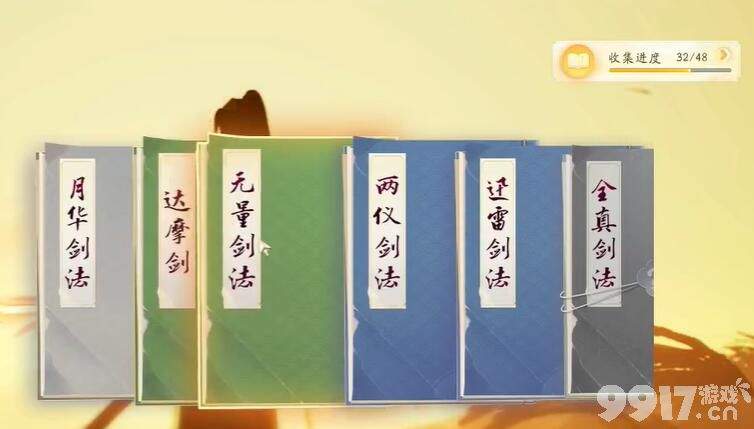 收集进度 32/48
月华剑法
达摩剑
无量剑法
两仪剑法
迅雷剑法
全真剑法
9917游戏
.cn